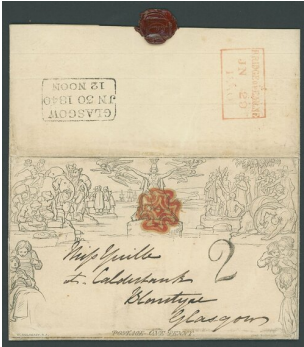 GLASGOW
JN 30 1840
12 NOON
JN 29
2
Miss Yuille
Calderbank
Blantyre
Glasgow
POSTAGE ONE PENNY